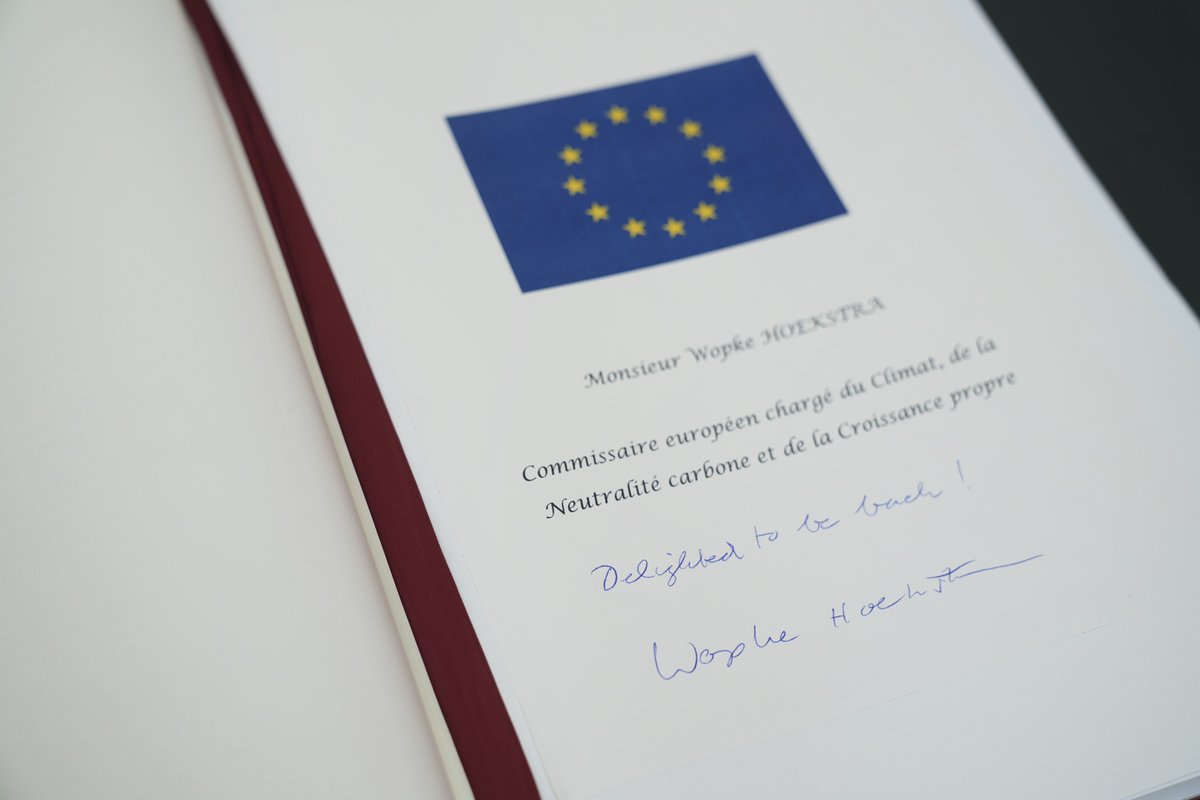 Monsieur Wopke HOEKSTRA
Commissaire européen chargé du Climat, de la
Neutralité carbone et de la Croissance propre
Delighted to be back!
Wopke Hoekstra